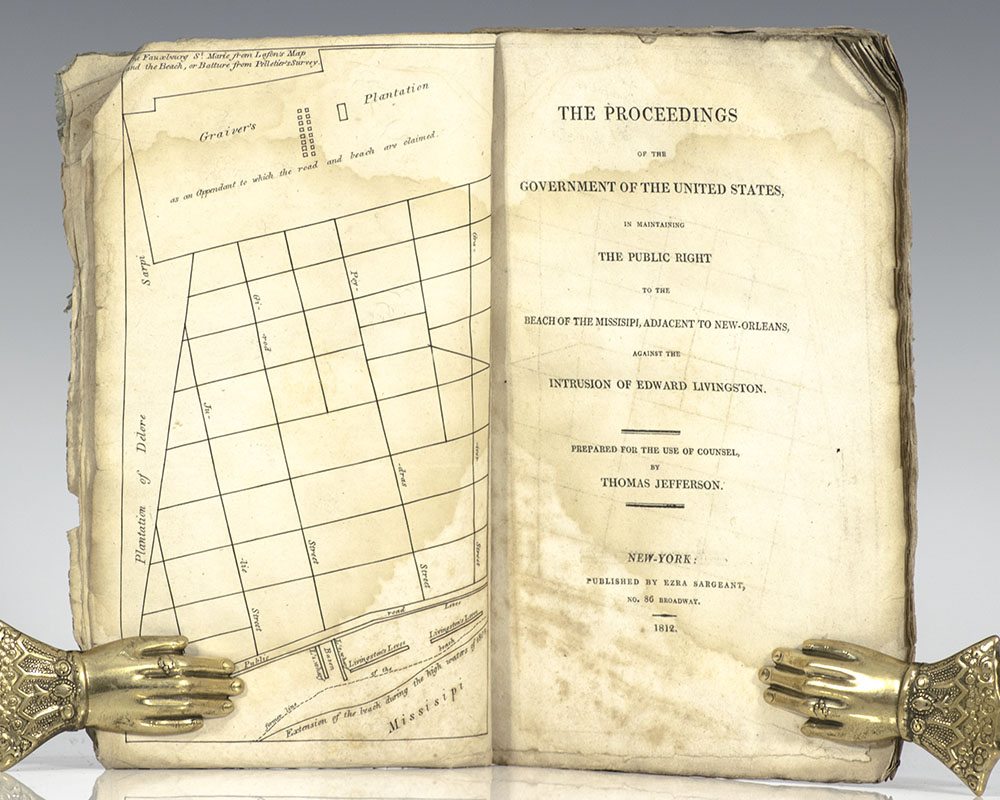 Fauxbourg St. Marie from Lafon's Map
and the Beach, or Batture from Pelletier's Survey.
Graiver's
Plantation
as an Appendant to which the road and beach are claimed.
Sarpi
Plantation of Delore
Gi-
rod
Street
Ju-
lie
Street
Poy-
dras
Street
Street
Public road
Levee
Livingston's Levee
Livingston's Levee
Bason
beach
of the
former line
Extension of the beach during the high waters of
Missisipi
THE PROCEEDINGS
OF THE
GOVERNMENT OF THE UNITED STATES,
IN MAINTAINING
THE PUBLIC RIGHT
TO THE
BEACH OF THE MISSISIPI, ADJACENT TO NEW-ORLEANS,
AGAINST THE
INTRUSION OF EDWARD LIVINGSTON.
PREPARED FOR THE USE OF COUNSEL,
BY
THOMAS JEFFERSON.
NEW-YORK:
PUBLISHED BY EZRA SARGEANT,
NO. 86 BROADWAY.
1812.